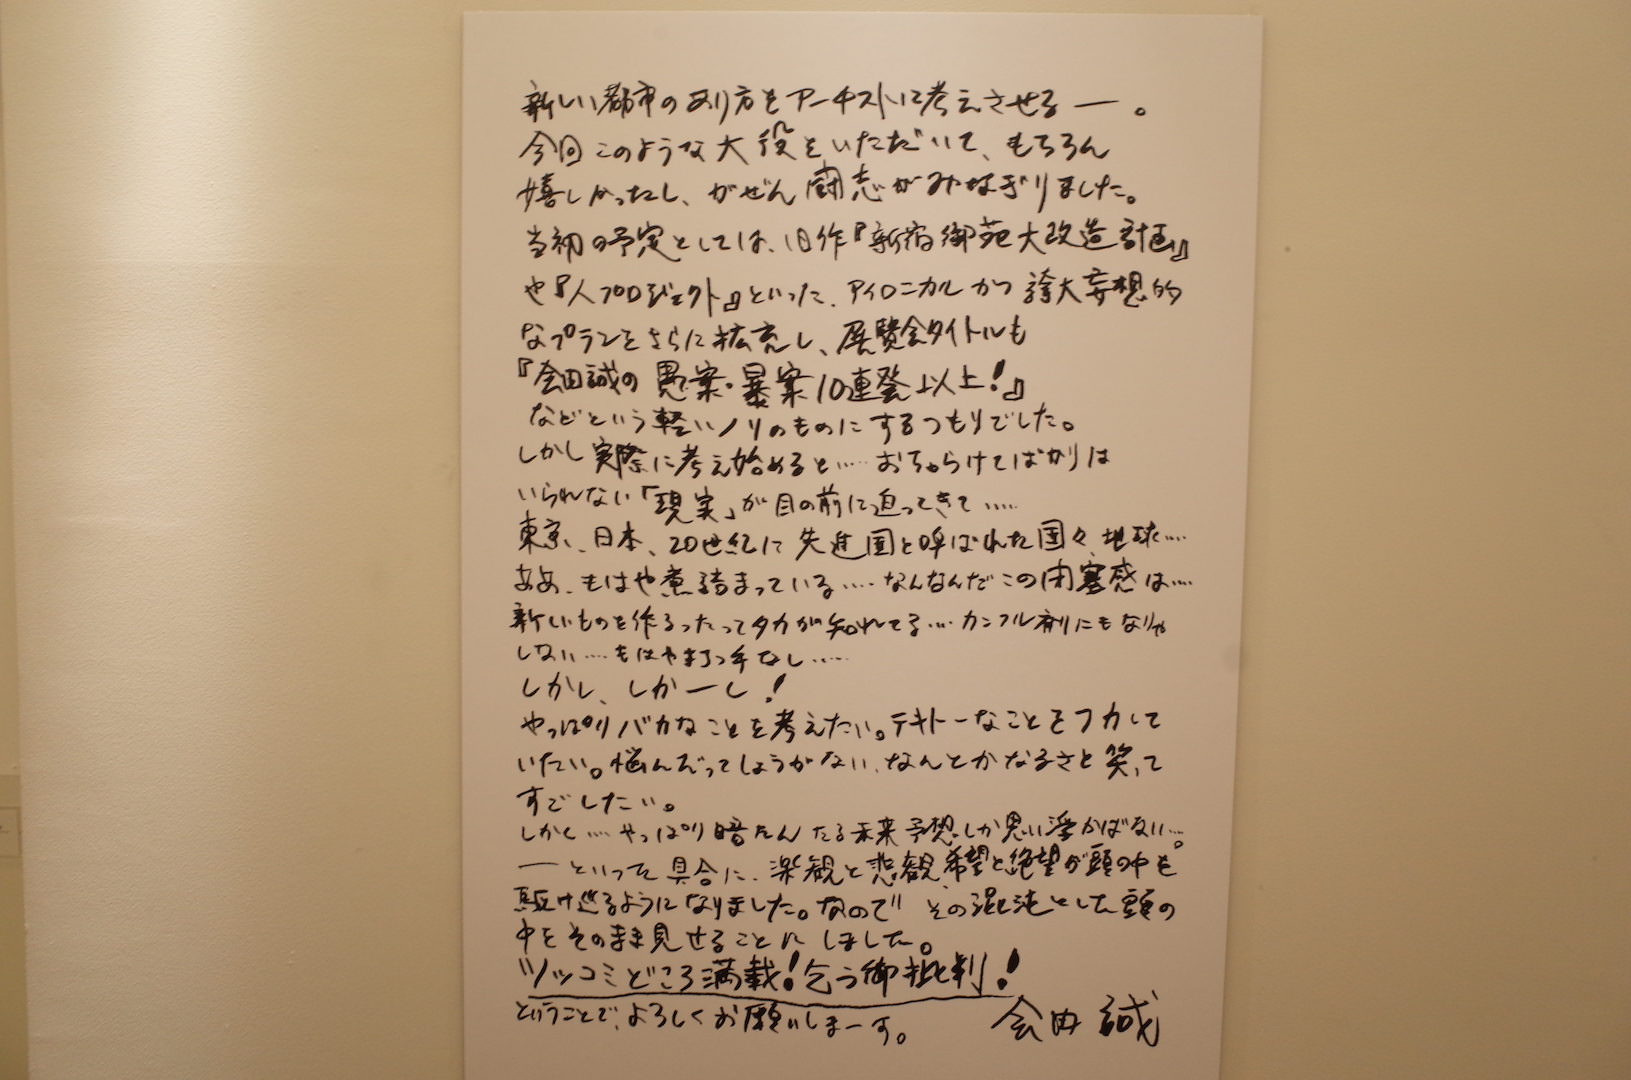 新しい都市のあり方をアーチストに考えさせる ー 。
今回このような大役をいただいて、もちろん
嬉しかったし、がぜん闘志がみなぎりました。
当初の予定としては、旧作『新宿御苑大改造計画』
や『人プロジェクト』といった、アイロニカルかつ誇大妄想的
なプランをさらに拡充し、展覧会タイトルも
『会田誠の愚案・暴案10連発以上!』
などという軽いノリのものにするつもりでした。
しかし実際に考え始めると……おちゃらけてばかりは
いられない「現実」が目の前に迫ってきて……
東京、日本、20世紀に先進国と呼ばれた国々、地球……
ああ、もはや煮詰まっている……なんなんだこの閉塞感は……
新しいものを作るったってタカが知れてる…カンフル剤にもなりゃ
しない……もはや打つ手なし……
しかし、しかーし!
やっぱりバカなことを考えたい。テキトーなことをフカして
いたい。悩んだってしょうがない、なんとかなるさと笑って
すごしたい。
しかし……やっぱり暗たんたる未来予想しか思い浮かばない…。
ーといった具合に、楽観と悲観、希望と絶望が頭の中を
駆け巡るようになりました。なので その混沌とした頭の
中をそのまま見せることにしました。
ツッコミどころ満載!乞う御批判!
ということで、よろしくお願いしまーす。
会田 誠